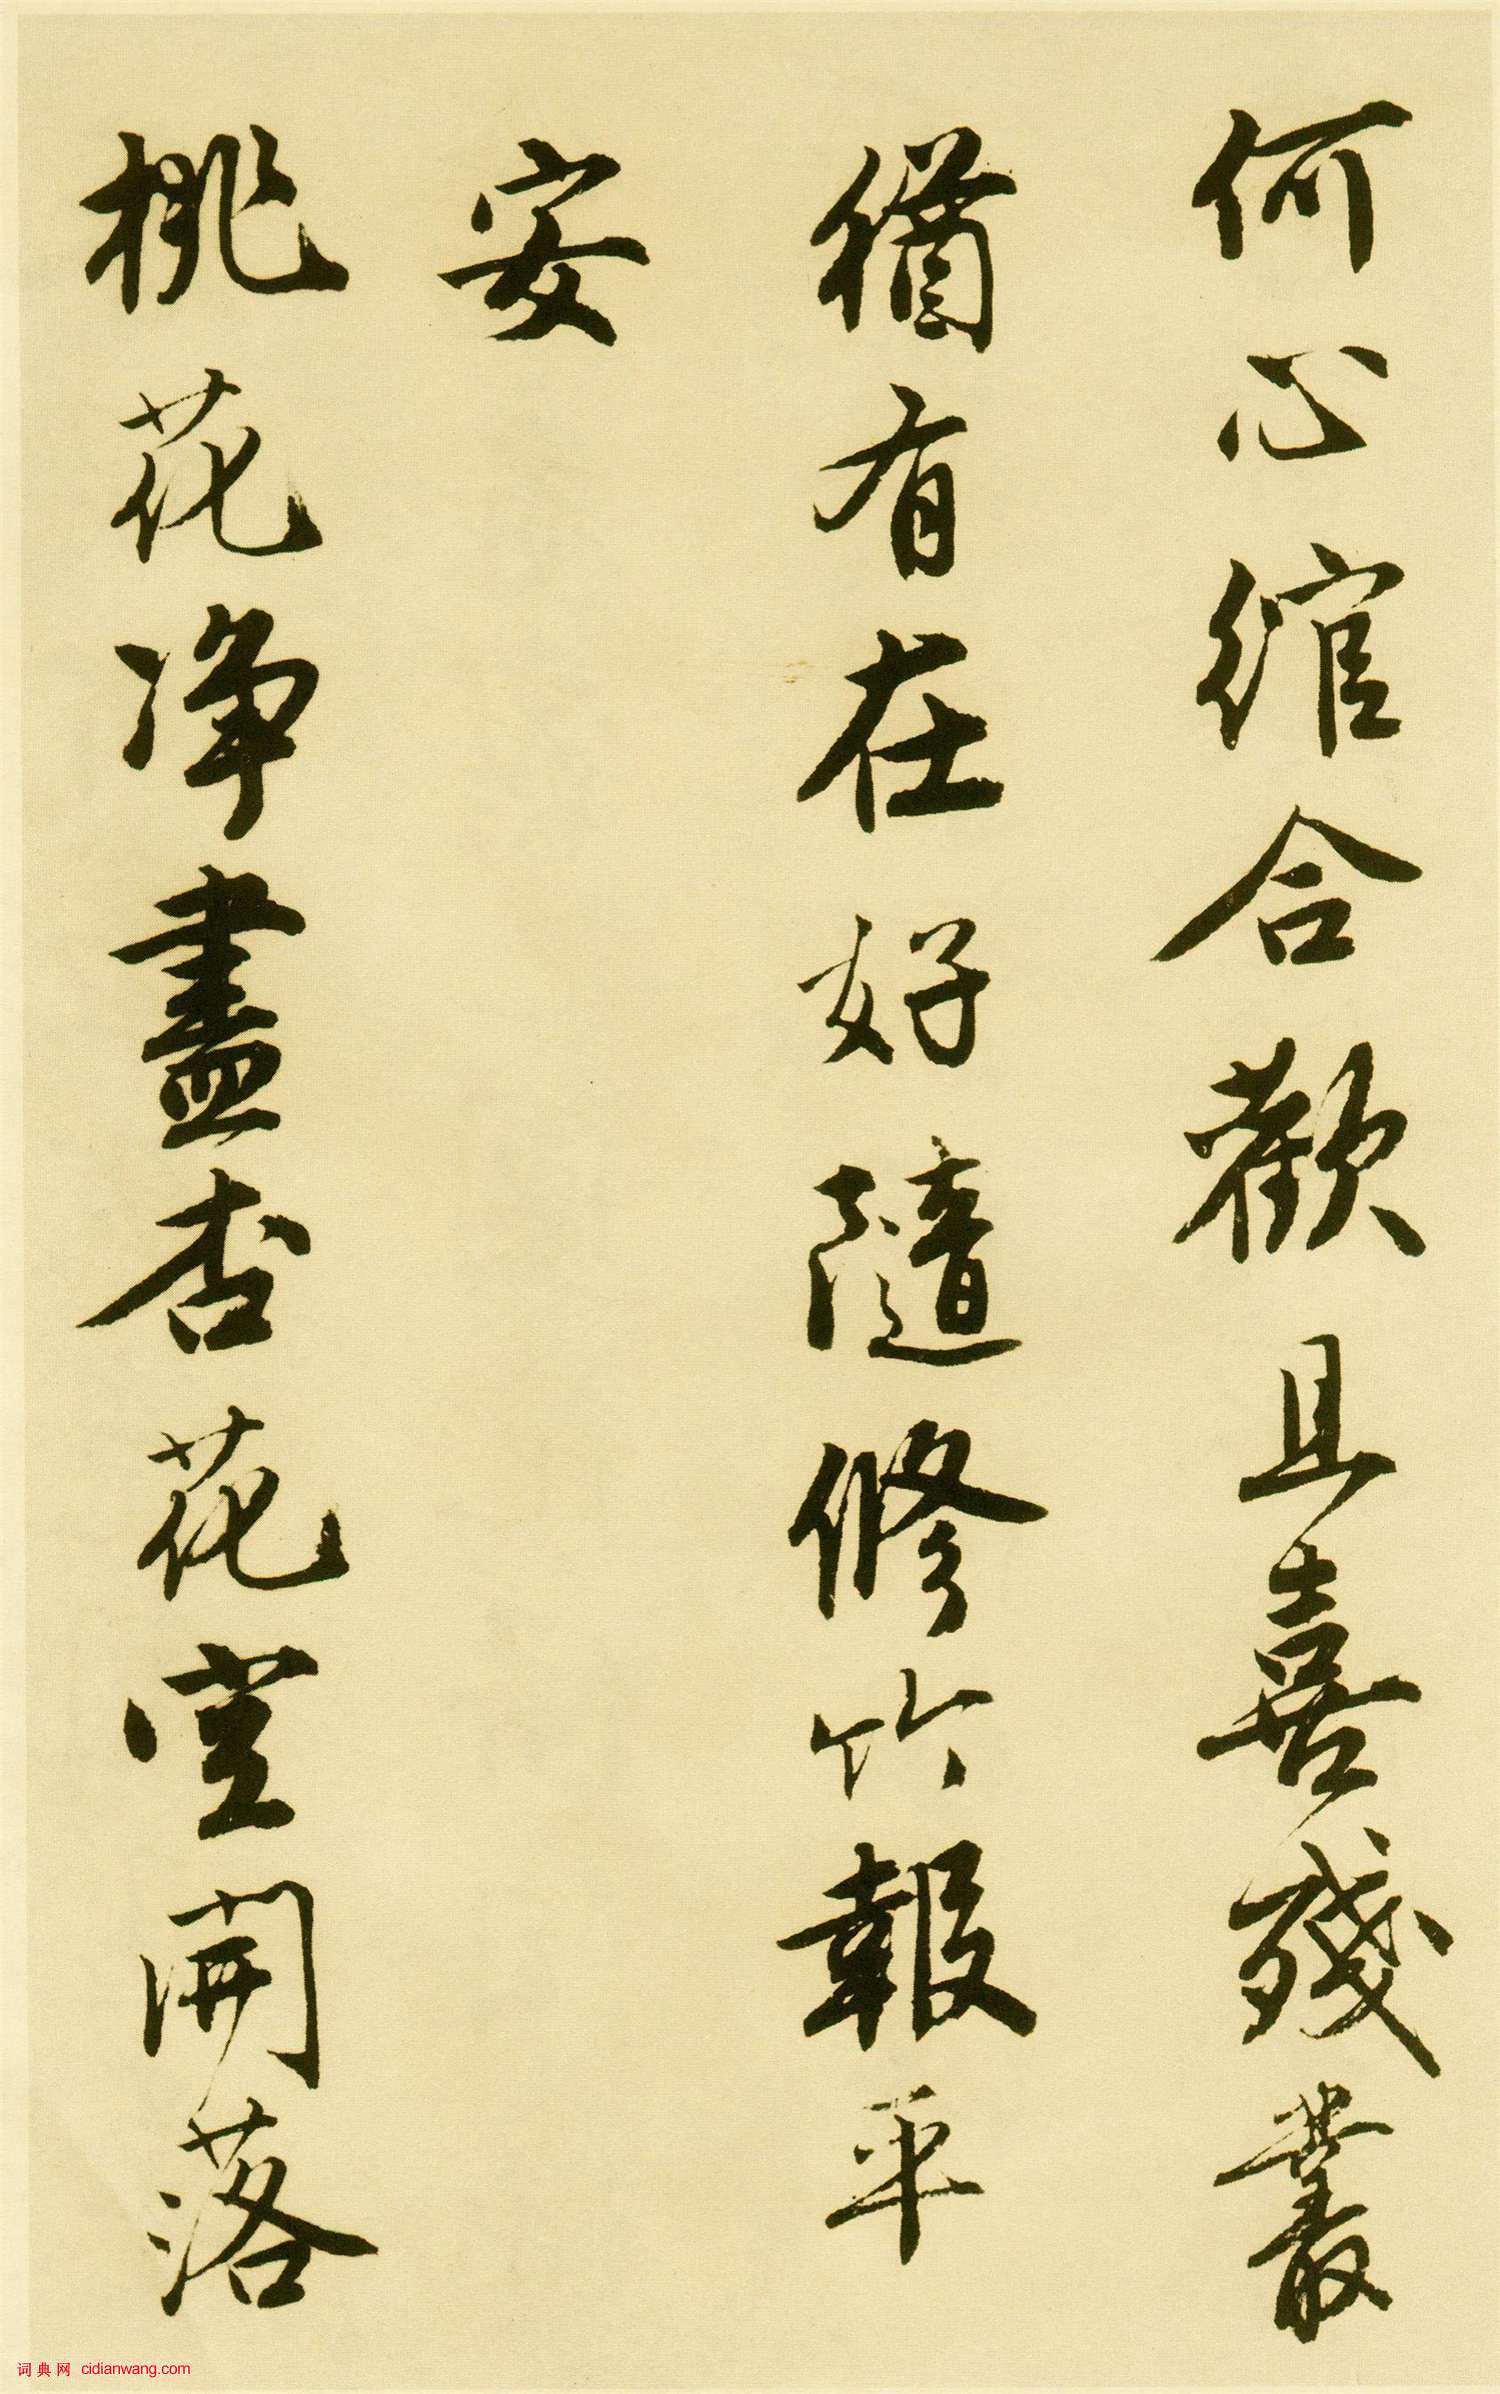 何心綰合歡且喜殘叢
猶有在好隨脩竹報平
安
桃花淨盡杏花空開落
词典网 cidianwang.com